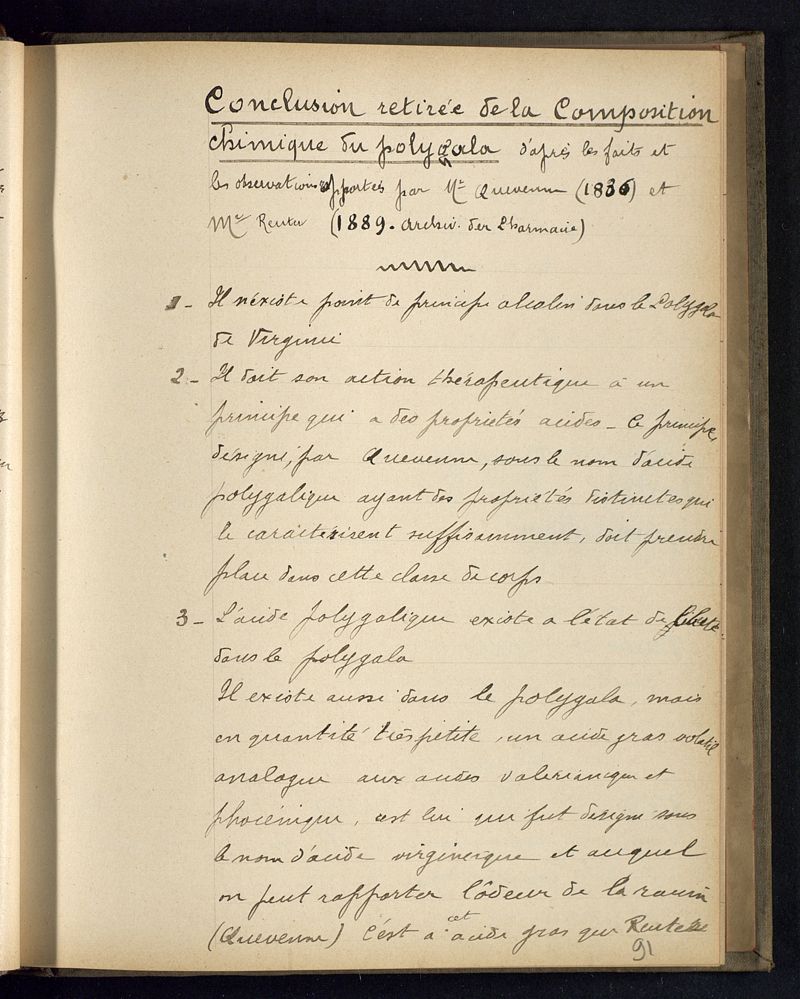 Conclusion retirée de la Composition
chimique du polygala d'après les faits et
les observations apportés par Mr Quevenne (1836) et
Mr Reuter (1889. Archiv. der Pharmacie)
1 - Il n'éxiste point de principe alcalin dans le Polygala
de Virginie
2 - Il doit son action thérapeutique à un
principe qui a des propriétés acides - Ce principe,
designé, par Quevenne, sous le nom d'acide
polygalique ayant des propriétés distinctes qui
le caractérisent suffisamment, doit prendre
place dans cette classe de corps
3 - L'acide polygalique existe a l'état de liberté
dans le polygala
Il existe aussi dans le polygala, mais
en quantité très petite, un acide gras volatil
analogue aux acides valerianique et
phocénique, c'est lui qui fut designé sous
le nom d'acide virgineique et auquel
on peut rapporter l'ôdeur de la racine
(Quevenne) C'est a cet acide gras que Reuter
91